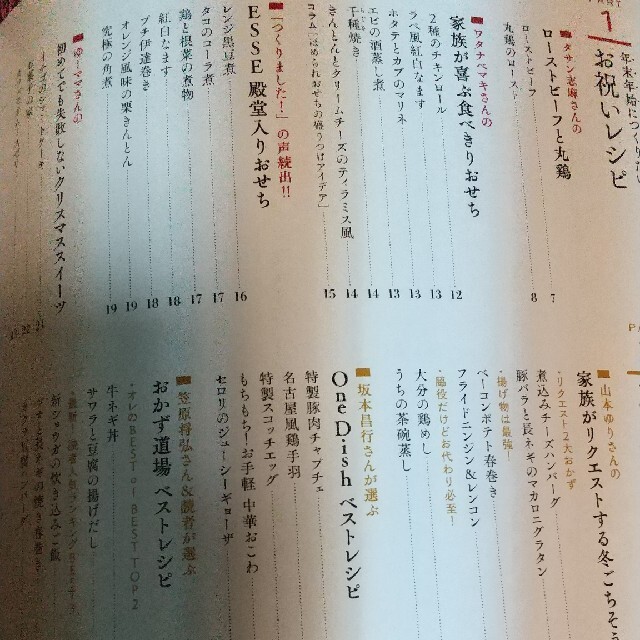 1
お祝いレシピ
タサン志麻さんの
ローストビーフと丸鶏
ローストビーフ 7
丸鶏のロースト 8
ワタナベマキさんの
家族が喜ぶ食べきりおせち 12
2種のチキンロール 13
ラペ風紅白なます 13
ホタテとカブのマリネ 13
エビの酒蒸し煮 14
千種焼き 14
きんとんとクリームチーズのティラミス風 14
コラム「ほめられおせちの盛りつけアイデア」 15
「つくりました！」の声続出!!
ESSE 殿堂入りおせち 16
レンジ黒豆煮 17
タコのコーラ煮 17
鶏と根菜の煮物 18
紅白なます 18
プチ伊達巻き 18
オレンジ風味の栗きんとん 19
究極の角煮 19
ゆーママさんの
初めてでも失敗しないクリスマススイーツ
山本ゆりさんの
家族がリクエストする冬ごちそう
・リクエスト2大おかず
煮込みチーズハンバーグ
豚バラと長ネギのマカロニグラタン
・揚げ物は最強！
ベーコンポテト春巻き
フライドニンジン&レンコン
・脇役だけどお代わり必至！
大分の鶏めし
うちの茶碗蒸し
坂本昌行さんが選ぶ
One Dish ベストレシピ
特製豚肉チャプチェ
名古屋風鶏手羽
特製スコッチエッグ
もちもち！お手軽 中華おこわ
セロリのジューシーギョーザ
笠原将弘さん&読者が選ぶ
おかず道場 ベストレシピ
・オレのBEST of BEST TOP2
牛ネギ丼
サワラと豆腐の揚げだし